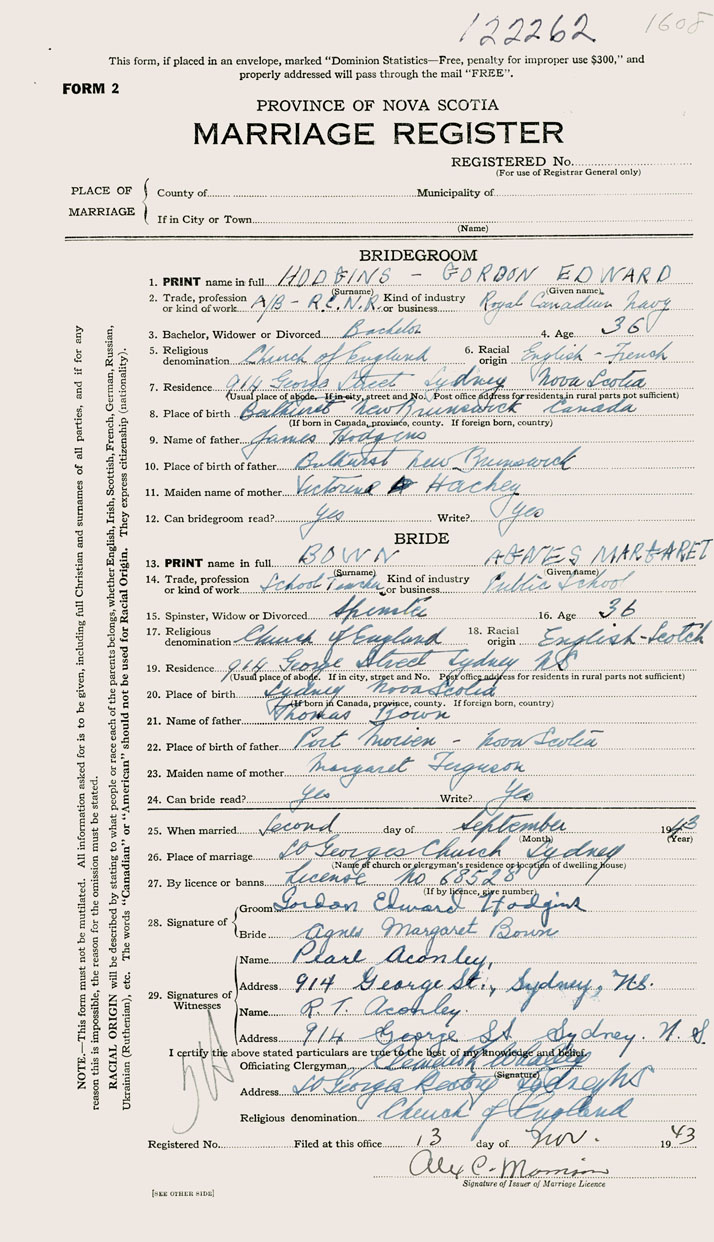 122262 1608
This form, if placed in an envelope, marked "Dominion Statistics—Free, penalty for improper use $300," and
properly addressed will pass through the mail "FREE".
FORM 2
PROVINCE OF NOVA SCOTIA
MARRIAGE REGISTER
REGISTERED No.
(For use of Registrar General only)
PLACE OF MARRIAGE
County of Municipality of
If in City or Town
(Name)
BRIDEGROOM
1. PRINT name in full HODGINS - GORDON EDWARD
(Surname) (Given name)
2. Trade, profession or kind of work A/B - R.C.N.R. Kind of industry or business Royal Canadian Navy
3. Bachelor, Widower or Divorced Bachelor 4. Age 36
5. Religious denomination Church of England 6. Racial origin English - French
7. Residence 914 George Street Sydney Nova Scotia
(Usual place of abode. If in city, street and No. Post office address for residents in rural parts not sufficient)
8. Place of birth Bathurst New Brunswick Canada
(If born in Canada, province, county. If foreign born, country)
9. Name of father James Hodgins
10. Place of birth of father Bathurst New Brunswick
11. Maiden name of mother Hachey
12. Can bridegroom read? Yes Write? Yes
BRIDE
13. PRINT name in full BOWN AGNES MARGARET
(Surname) (Given name)
14. Trade, profession or kind of work School Teacher Kind of industry or business Public School
15. Spinster, Widow or Divorced Spinster 16. Age 36
17. Religious denomination Church of England 18. Racial origin English-Scotch
19. Residence 914 George Street Sydney NS
(Usual place of abode. If in city, street and No. Post office address for residents in rural parts not sufficient)
20. Place of birth Sydney Nova Scotia
(If born in Canada, province, county. If foreign born, country)
21. Name of father Thomas Bown
22. Place of birth of father Port Morien - Nova Scotia
23. Maiden name of mother Margaret Ferguson
24. Can bride read? Yes Write? Yes
25. When married Second day of September 1943
(Month) (Year)
26. Place of marriage St Georges Church Sydney
(Name of church or clergyman's residence or location of dwelling house)
27. By licence or banns License no 68528
(If by licence, give number)
28. Signature of
Groom Gordon Edward Hodgins
Bride Agnes Margaret Bown
29. Signatures of Witnesses
Name Pearl Aconley,
Address 914 George St., Sydney, N.S.
Name R. T. Aconley.
Address 914 George St. Sydney. N. S.
I certify the above stated particulars are true to the best of my knowledge and belief.
Officiating Clergyman
(Signature)
Address St Georges Rectory Sydney NS
Religious denomination Church of England
Registered No. Filed at this office 13 day of Nov. 1943
Alex C. Morrison
Signature of Issuer of Marriage Licence
[SEE OTHER SIDE]
NOTE.—This form must not be mutilated. All information asked for is to be given, including full Christian and surnames of all parties, and if for any
reason this is impossible, the reason for the omission must be stated.
RACIAL ORIGIN will be described by stating to what people or race each of the parents belongs, whether English, Irish, Scottish, French, German, Russian,
Ukrainian (Ruthenian), etc. The words "Canadian" or "American" should not be used for Racial Origin. They express citizenship (nationality).